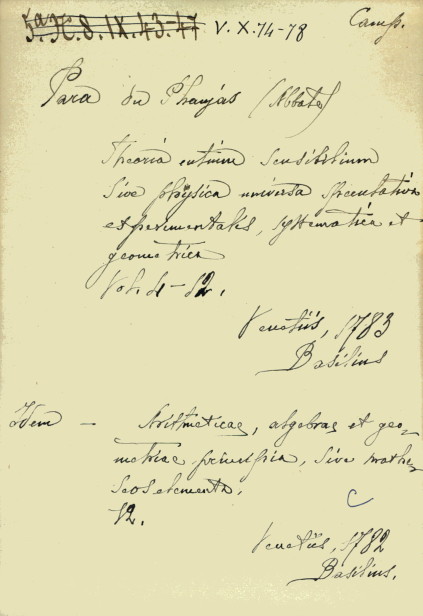 5.a H.8.IX.43.-47 V.X.74-78 Camp.
Para du Phanjas (Abbate)
Theoria entium sensibilium
sive physica universa speculativa
experimentalis, systematica et
geometrica
Vol. 4 - 12.
Venetiis, 1783
Basilius
Idem — Arithmeticae, algebrae et geo-
metriae principia, sive mathe-
seos elementa.
12.
C
Venetiis, 1782
Basilius.